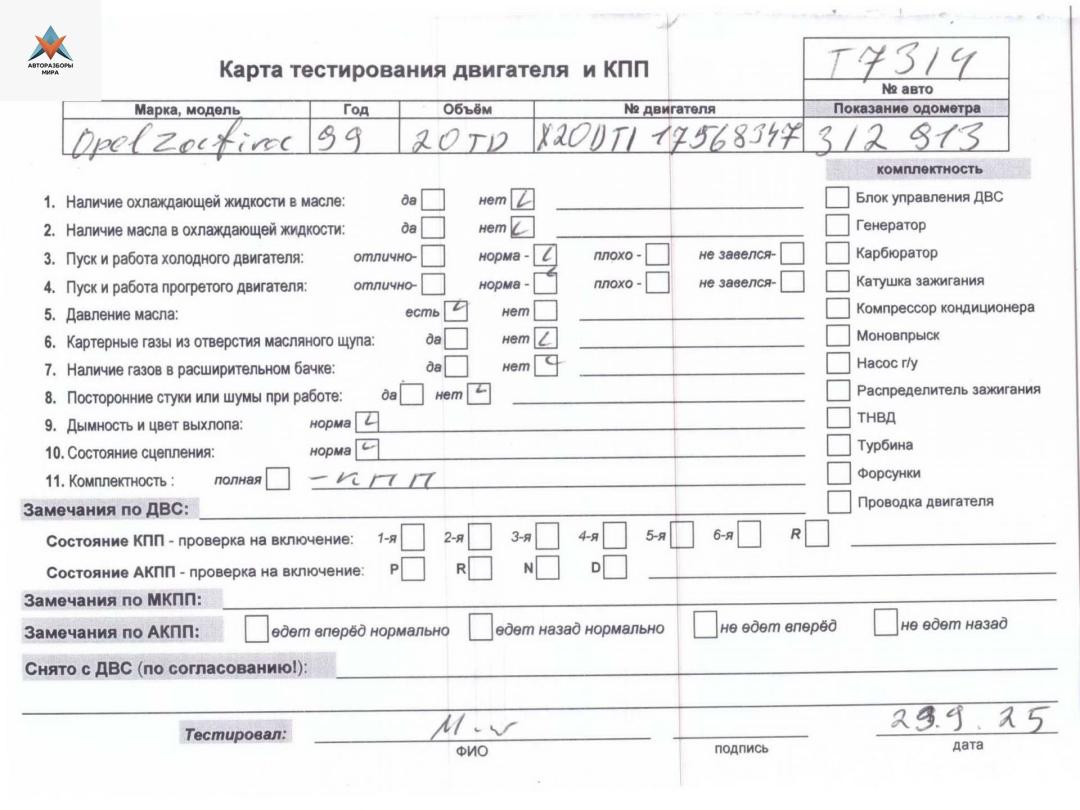 АВТОРАЗБОРЫ
МИРА
Карта тестирования двигателя и КПП
T7314
№ авто
Марка, модель Год Объём № двигателя Показание одометра
Opel Zafira 99 20TD X20DTI 17568347 312 913
комплектность
1. Наличие охлаждающей жидкости в масле: да нет Блок управления ДВС
2. Наличие масла в охлаждающей жидкости: да нет Генератор
3. Пуск и работа холодного двигателя: отлично- норма - плохо - не завелся- Карбюратор
4. Пуск и работа прогретого двигателя: отлично- норма - плохо - не завелся- Катушка зажигания
5. Давление масла: есть нет Компрессор кондиционера
6. Картерные газы из отверстия масляного щупа: да нет Моновпрыск
7. Наличие газов в расширительном бачке: да нет Насос г/у
8. Посторонние стуки или шумы при работе: да нет Распределитель зажигания
9. Дымность и цвет выхлопа: норма ТНВД
10. Состояние сцепления: норма Турбина
11. Комплектность : полная - кпп Форсунки
Замечания по ДВС: Проводка двигателя
Состояние КПП - проверка на включение: 1-я 2-я 3-я 4-я 5-я 6-я R
Состояние АКПП - проверка на включение: P R N D
Замечания по МКПП:
Замечания по АКПП: едет вперёд нормально едет назад нормально не едет вперёд не едет назад
Снято с ДВС (по согласованию!):
Тестировал:
ФИО подпись дата